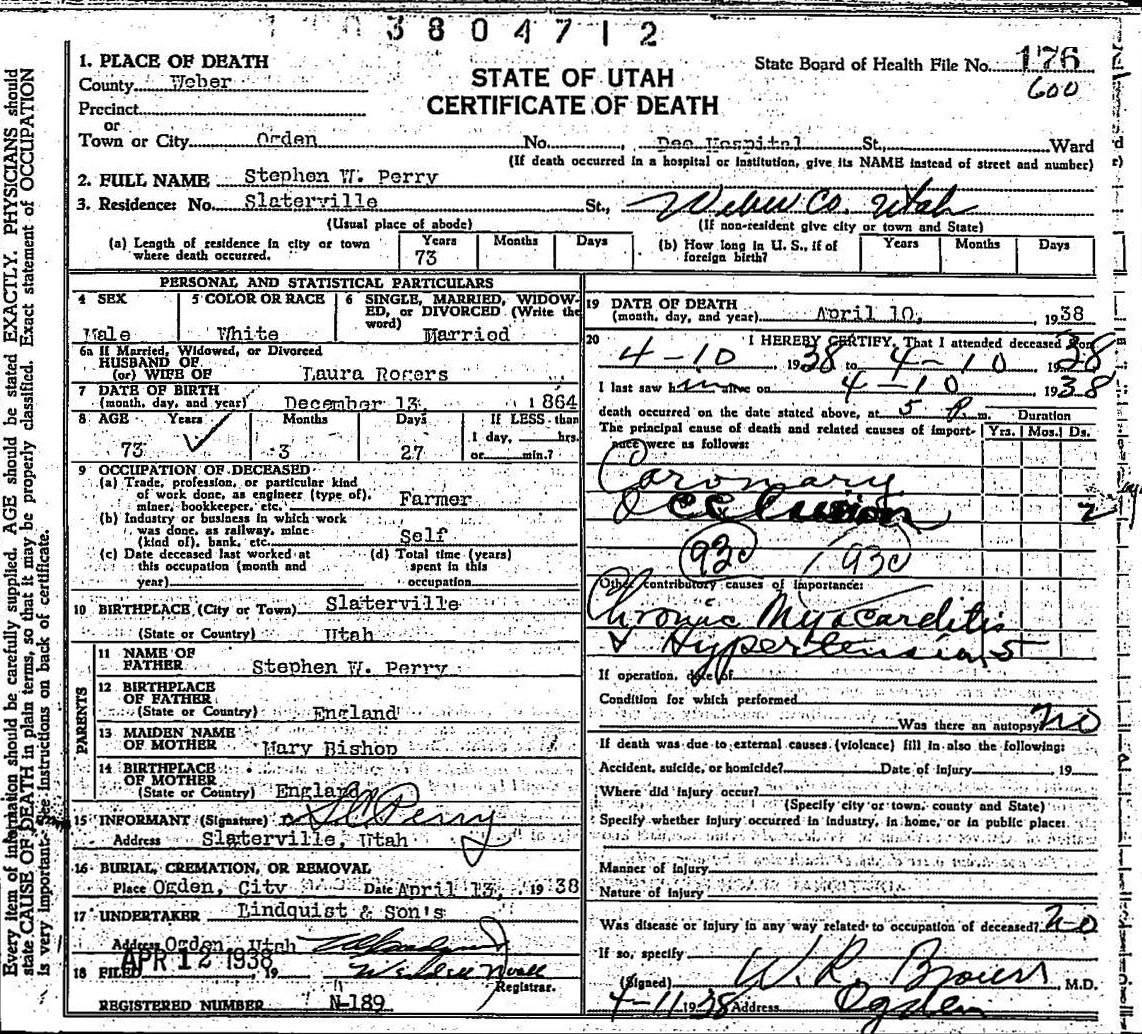 3804712
1. PLACE OF DEATH
County Weber
Precinct
or
Town or City Ogden No. Dee Hospital St., Ward
(If death occurred in a hospital or institution, give its NAME instead of street and number)
STATE OF UTAH
CERTIFICATE OF DEATH
State Board of Health File No. 176
600
2. FULL NAME Stephen W. Perry
3. Residence: No. Slaterville St., Weber Co. Utah
(Usual place of abode) (If non-resident give city or town and State)
(a) Length of residence in city or town where death occurred. Years 73 Months Days
(b) How long in U. S., if of foreign birth? Years Months Days
PERSONAL AND STATISTICAL PARTICULARS
4 SEX Male
5 COLOR OR RACE White
6 SINGLE, MARRIED, WIDOW-
ED, or DIVORCED (Write the
word) Married
6a If Married, Widowed, or Divorced
HUSBAND OF
(or) WIFE OF Laura Rogers
7 DATE OF BIRTH
(month, day, and year) December 13, 1864
8 AGE Years 73 Months 3 Days 27 If LESS than
1 day, hrs.
or min.?
9 OCCUPATION OF DECEASED
(a) Trade, profession, or particular kind
of work done, as engineer (type of),
miner, bookkeeper, etc. Farmer
(b) Industry or business in which work
was done, as railway, mine
(kind of), bank, etc. Self
(c) Date deceased last worked at
this occupation (month and
year)
(d) Total time (years)
spent in this
occupation
10 BIRTHPLACE (City or Town) Slaterville
(State or Country) Utah
PARENTS
11 NAME OF
FATHER Stephen W. Perry
12 BIRTHPLACE
OF FATHER
(State or Country) England
13 MAIDEN NAME
OF MOTHER Mary Bishop
14 BIRTHPLACE
OF MOTHER
(State or Country) England
15 INFORMANT (Signature) Perry
Address Slaterville, Utah
16 BURIAL, CREMATION, OR REMOVAL
Place Ogden, City Date April 13, 1938
17 UNDERTAKER Lindquist & Son's
Address Ogden, Utah
18 FILED APR 12 1938, 19
Registrar.
REGISTERED NUMBER N-189
19 DATE OF DEATH
(month, day, and year) April 10, 1938
20 I HEREBY CERTIFY, That I attended deceased from
4-10 1938 to 4-10 1938
I last saw him alive on 4-10 1938
death occurred on the date stated above, at 5 P m. Duration
The principal cause of death and related causes of import-
ance were as follows: Yrs. Mos. Ds.
Coronary
Occlusion 2
93c 93c
Other contributory causes of importance:
Chronic Myocarditis
& Hypertension 5
If operation, date of
Condition for which performed
Was there an autopsy no
If death was due to external causes (violence) fill in also the following:
Accident, suicide, or homicide? Date of injury 19
Where did injury occur?
(Specify city or town, county and State)
Specify whether injury occurred in industry, in home, or in public place:
Manner of injury
Nature of injury
Was disease or injury in any way related to occupation of deceased? no
If so, specify
(Signed) W. R. M.D.
4-11 1938 Address Ogden
Every item of information should be carefully supplied. AGE should be stated EXACTLY. PHYSICIANS should
state CAUSE OF DEATH in plain terms, so that it may be properly classified. Exact statement of OCCUPATION
is very important. See instructions on back of certificate.